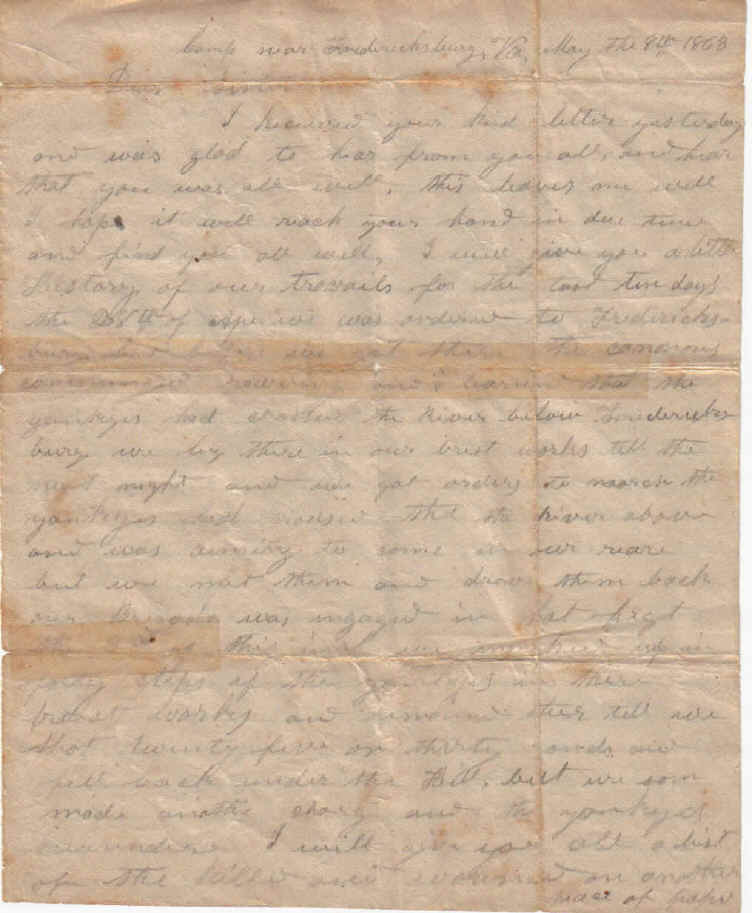 Camp near Fredericksburg, Va, May the 8th 1863
Dear Sister
I received your kind letter yesterday
and was glad to hear from you all, and hear
that you was all well, this leaves me well
I hope it will reach your hand in due time
and find you all well, I will give you a little
history of our travails for the last ten days
the of was orderd to Fredericks-
burg but before we got there the
command and learnd that the
yankeys had crossed the River below Fredericks
burg we lay there in our brest works till the
next night and we got orders to march the
yankeys had the River above
and was aiming to come in our reare
but we met them and drove them back
our Brigade was engaged in hot
the of this inst we marched up in
steps of the yankeys in there
brest works and there till we
shot twenty five or thirty rounds and
fell back under the hill, but we soon
made another charg and the yankeys
I will give you all a list
of the killd and wounded on another
peace of paper